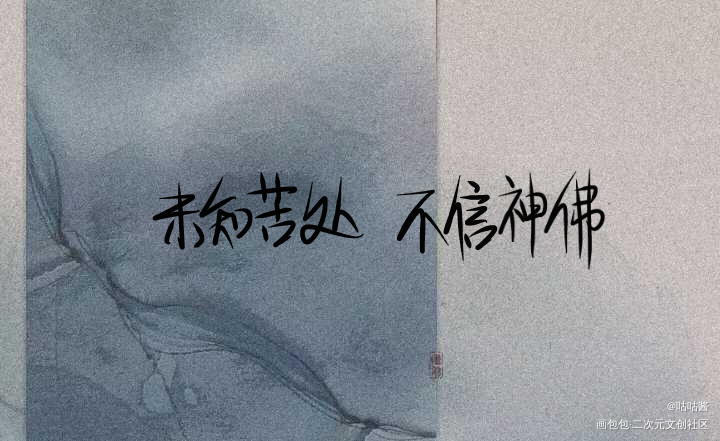 未知苦处 不信神佛
@咕咕酱
画包包·二次元文创社区